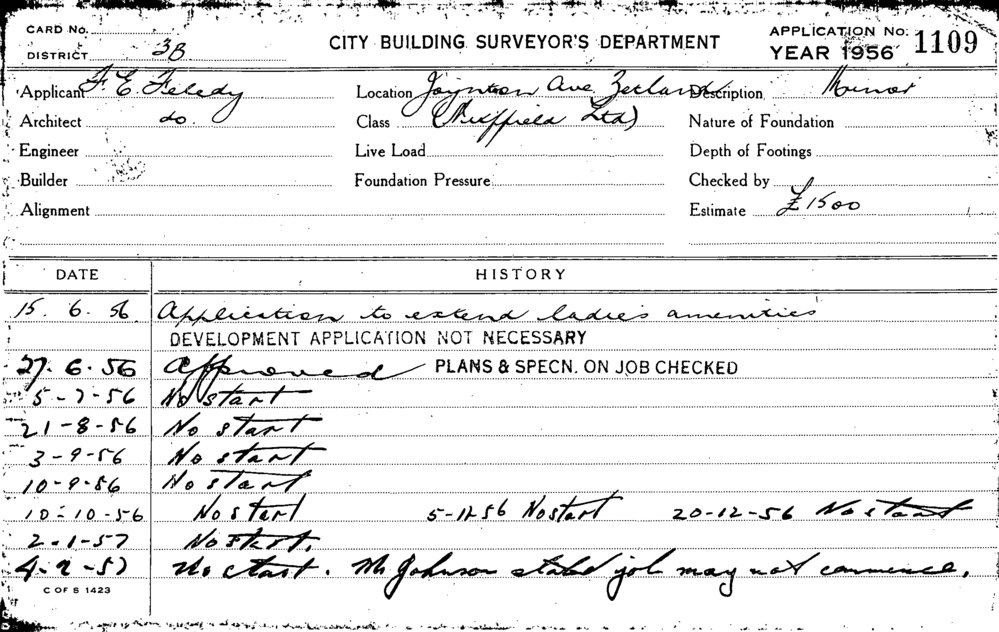 CARD No.
DISTRICT 3B
CITY BUILDING SURVEYOR'S DEPARTMENT
APPLICATION No. 1109
YEAR 1956
Applicant F. E. Feledy
Location Joynton Ave Zetland
Description Minor
Architect do.
Class (Nuffield Ltd)
Nature of Foundation
Engineer
Live Load
Depth of Footings
Builder
Foundation Pressure
Checked by
Alignment
Estimate £1500
DATE HISTORY
15. 6. 56 Application to extend ladies amenities
DEVELOPMENT APPLICATION NOT NECESSARY
27. 6. 56 Approved PLANS & SPECN. ON JOB CHECKED
5-7-56 No start
21-8-56 No start
3-9-56 No start
10-9-56 No start
10-10-56 No start 5-11-56 No start 20-12-56 No start
2-1-57 No start.
4-2-57 No start. Mr Johnson stated job may not commence.
C OF S 1423